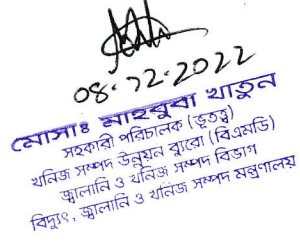 08.12.2022
মোসাঃ মাহবুবা খাতুন
সহকারী পরিচালক (ভূতত্ত্ব)
খনিজ সম্পদ উন্নয়ন ব্যুরো (বিএমডি)
জ্বালানি ও খনিজ সম্পদ বিভাগ
বিদ্যুৎ, জ্বালানি ও খনিজ সম্পদ মন্ত্রণালয়